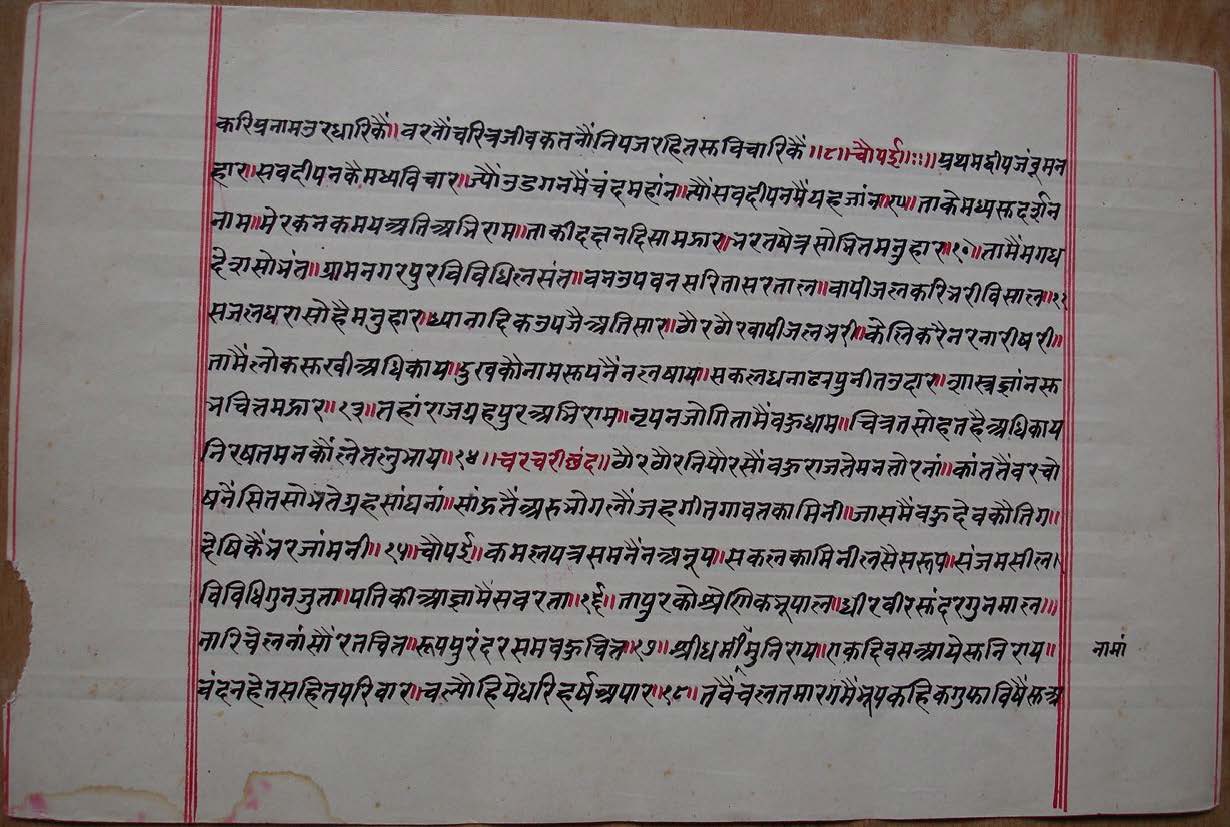 करिप्रनामउरधारिकैं॥वरनौंचरित्रजीवकतनौंनिपजरहितसुविचारिकैं॥८॥चौपई॥ःः॥प्रथमदीपजंबूमन
हार॥सवदीपनकैमध्यविचार॥ज्यौंउडगनमैंचंद्रमहांन॥त्यौंसवदीपनमैंयहजांन॥९५॥ताकेमध्यसुदर्शन
नाम॥मेरकनकमयअतिअभिराम॥ताकीदक्षनदिसामझार॥भरतषेत्रसोभितमनुहार॥१०॥तामैंमगध
देशसोभंत॥ग्रामनगरपुरविविधिलसंत॥वनउपवनसरितासरताल॥वापीजलकरिभरीविसाल॥११
सजलधरासोहैमनुहार॥ध्यानादिकउपजैअतिसार॥ठौरठौरवापीजलभरी॥केलिकरैनरनारीषरी॥
तामैंलोकसुखीअधिकाय॥दुखकौनामसुपनैंनलषाय॥सकलधनाढ्यपुनीतउदार॥शास्त्रज्ञांनसु
भचित्तमझार॥१३॥तहांराजग्रहपुरअभिराम॥नृपनजोगितामैंवहुधाम॥चित्रतसोहतहैअधिकाय
निरषतमनकौंलेतलुभाय॥१४॥चरचरीछंद॥ठौरठौरनिपौरसौंवहुराजतेमनतोरनां॥कांततैंवरचो
षनैंसितसोभतेग्रहसांघनां॥सांहुतैंअरुभोगलौंजहगीतगावतकामिनी॥जासमैंवहुदेवकौतिग॥
देषिकैंभरजांमनी॥१५॥चौपई॥कमलपत्रसमनैंनअनूप॥सकलकामिनीलसैसरूप॥संजमसील।
विविधिगुनजुता॥पतिकीआज्ञामैंसवरता॥१६॥तापुरकोश्रेणिकभूपाल॥धीरवीरसुंदरगुनमाल॥॥
नारिचेलनांसौंरतचित्त॥रूपपुरंदरसमवहुवित्त॥१७॥श्रीधर्ममुनिराय॥एकदिवसआयेसुनिराय॥
नामां
वंदनहेतसहितपरिवार॥चल्यौहियेधरिहर्षअपार॥१८॥तवैंचलतमारगमैंभूपकहिकगुफाविषैंसुअ